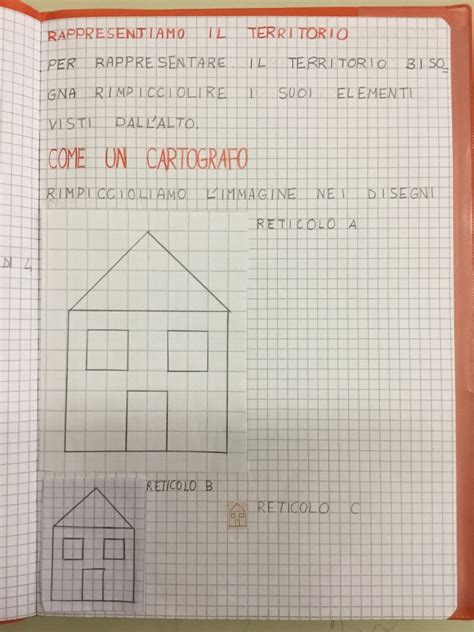 RAPPRESENTIAMO IL TERRITORIO
PER RAPPRESENTARE IL TERRITORIO BISO
GNA RIMPICCIOLIRE I SUOI ELEMENTI
VISTI DALL'ALTO.
COME UN CARTOGRAFO
RIMPICCIOLIAMO L'IMMAGINE NEI DISEGNI
RETICOLO A
DI 4
RETICOLO B
RETICOLO C